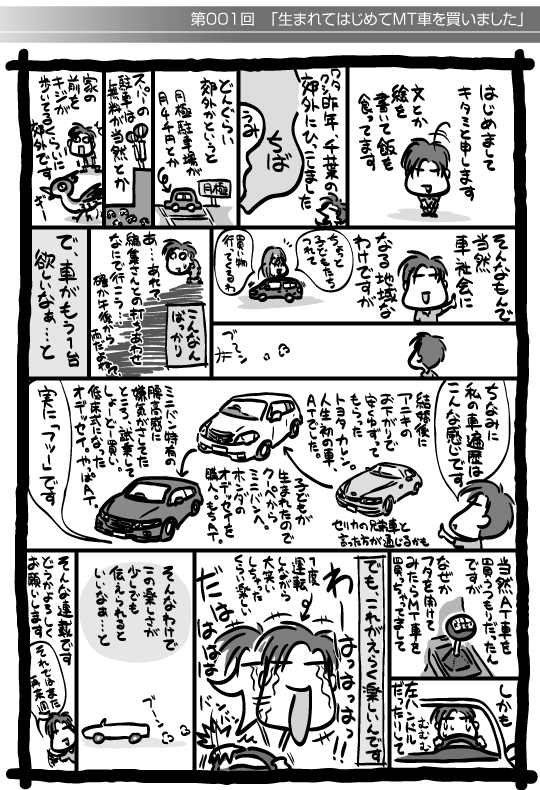 第001回 「生まれてはじめてMT車を買いました」
はじめまして
キタミと申します
文とか
絵を
書いて飯を
食ってます
ワタクシ昨年、千葉の
郊外にひっこしました
ちば
うみ
どんぐらい
郊外かというと
月極駐車場が
月4千円とか
月極
スーパーの
駐車場は
無料が当然とか
家の
前を
キジが
歩いてるくらいに
郊外です
ギー
そんなもんで
当然
車社会に
なる地域な
わけですが
ちょっと
子どもたち
つれて
買い物
行ってくるわ
あ…あれ?
編集さんとの打ちあわせ
なにで行こう…
確か午後から
雨だよね?
こんなん
ばっかり
ブーン
で、車がもう1台
欲しいなぁ…と
ちなみに
私の車遍歴は
こんな感じです
結婚後に
アニキの
お下がりで
安くゆずって
もらった
トヨタカレン。
人生初の車、
ATでした。
セリカの兄弟車と
言った方が通じるかも
子どもが
生まれたので
クーペから
ミニバンへ。
ホンダの
オデッセイを
購入。もちAT。
ミニバン特有の
腰高感に
嫌気がさしてた
ところ、試乗して
しょーどー買い。
低床式になった
オデッセイ。やっぱAT。
実に「フツー」です
当然AT車を
買うつもりだったん
ですが
なぜか
フタを開けて
みたらMT車を
買っちゃってまして
しかも
左ハンドル
だったりして
むむむ
でも、これがえらく楽しいんです
わーはっはっはっ!!
1度
運転
しながら
大笑い
しちゃった
くらい楽しい
だはははは
バンバン
そんなわけで
この楽しさが
少しでも
伝えられると
いいなぁ…と
ブーン
そんな連載です
どうかよろしく
お願いします
それではまた
再来週